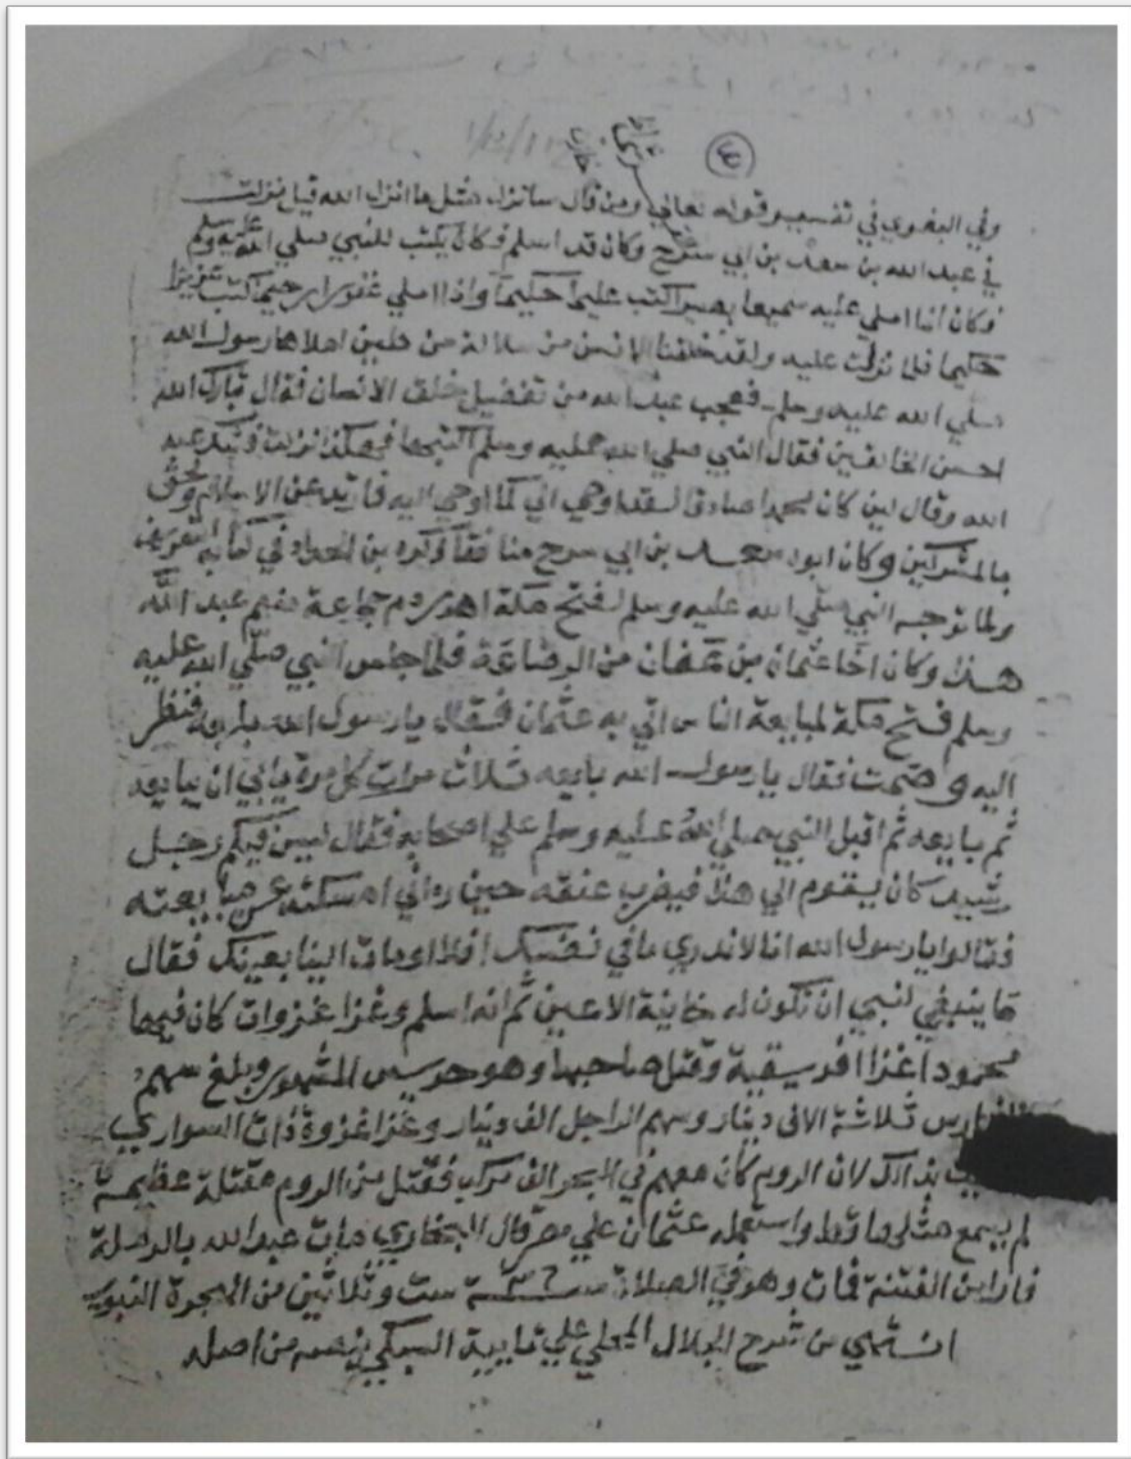 ٣
وفي البغوي في تفسير قوله تعالى ومن قال سانزل مثل ما انزل الله قيل نزلت
في عبد الله بن سعد بن ابي سرح وكان قد اسلم فكان يكتب للنبي صلي الله عليه وسلم
فكان اذا املي عليه سميعا بصيرا كتب عليما حكيما واذا املي غفورا رحيما كتب عزيزا
حكيما فلما نزلت عليه ولقد خلقنا الانسن من سلالة من طين املاها رسول الله
صلي الله عليه وسلم فعجب عبد الله من تفضيل خلق الانسان فقال تبارك الله
احسن الخالقين فقال النبي صلي الله عليه وسلم اكتبها فهكذا نزلت فشك عبد
الله وقال لين كان محمدا صادقا لقد اوحي الي كما اوحي اليه فارتد عن الاسلام ولحق
بالمشركين وكان ابوه سعد بن ابي سرح منافقا ذكره بن الحداد في كتابه التعريف
ولما توجه النبي صلي الله عليه وسلم لفتح مكة اهدر دم جماعة منهم عبد الله
هذا وكان اخا عثمان بن عفان من الرضاعة فلما جلس النبي صلي الله عليه
وسلم فتح مكة لمبايعة الناس اتي به عثمان فقال يا رسول الله بايعه فنظر
اليه وصمت فقال يا رسول الله بايعه ثلاث مرات كل مرة يابي ان يبايعه
ثم بايعه ثم اقبل النبي صلي الله عليه وسلم علي اصحابه فقال ليس فيكم رجل
رشيد كان يقوم الي هذا فيضرب عنقه حين راني امسكت عن مبايعته
فقالوا يا رسول الله انا لا ندري ما في نفسك افلا اومات الينا بعينك فقال
ما ينبغي لنبي ان تكون له خاينة الاعين ثم انه اسلم وغزا غزوات كان فيها
محمودا غزا افريقية وقتل صاحبها وهو جرجيس المشهور وبلغ سهم
الفارس ثلاثة الاف دينار وسهم الراجل الف دينار وغزا غزوة ذات السواري
بذلك لان الروم كان معهم في البحر الف مركب فقتل من الروم مقتلة عظيمة
لم يسمع مثلها قط واستعمله عثمان علي مصر قال البخاري مات عبد الله بالرملة
فارا من الفتنة فمات وهو في الصلاة سنة ٣٦ ست وثلاثين من الهجرة النبوية
انتهي من شرح الجلال المحلي علي تايية السبكي بنصه من اصله